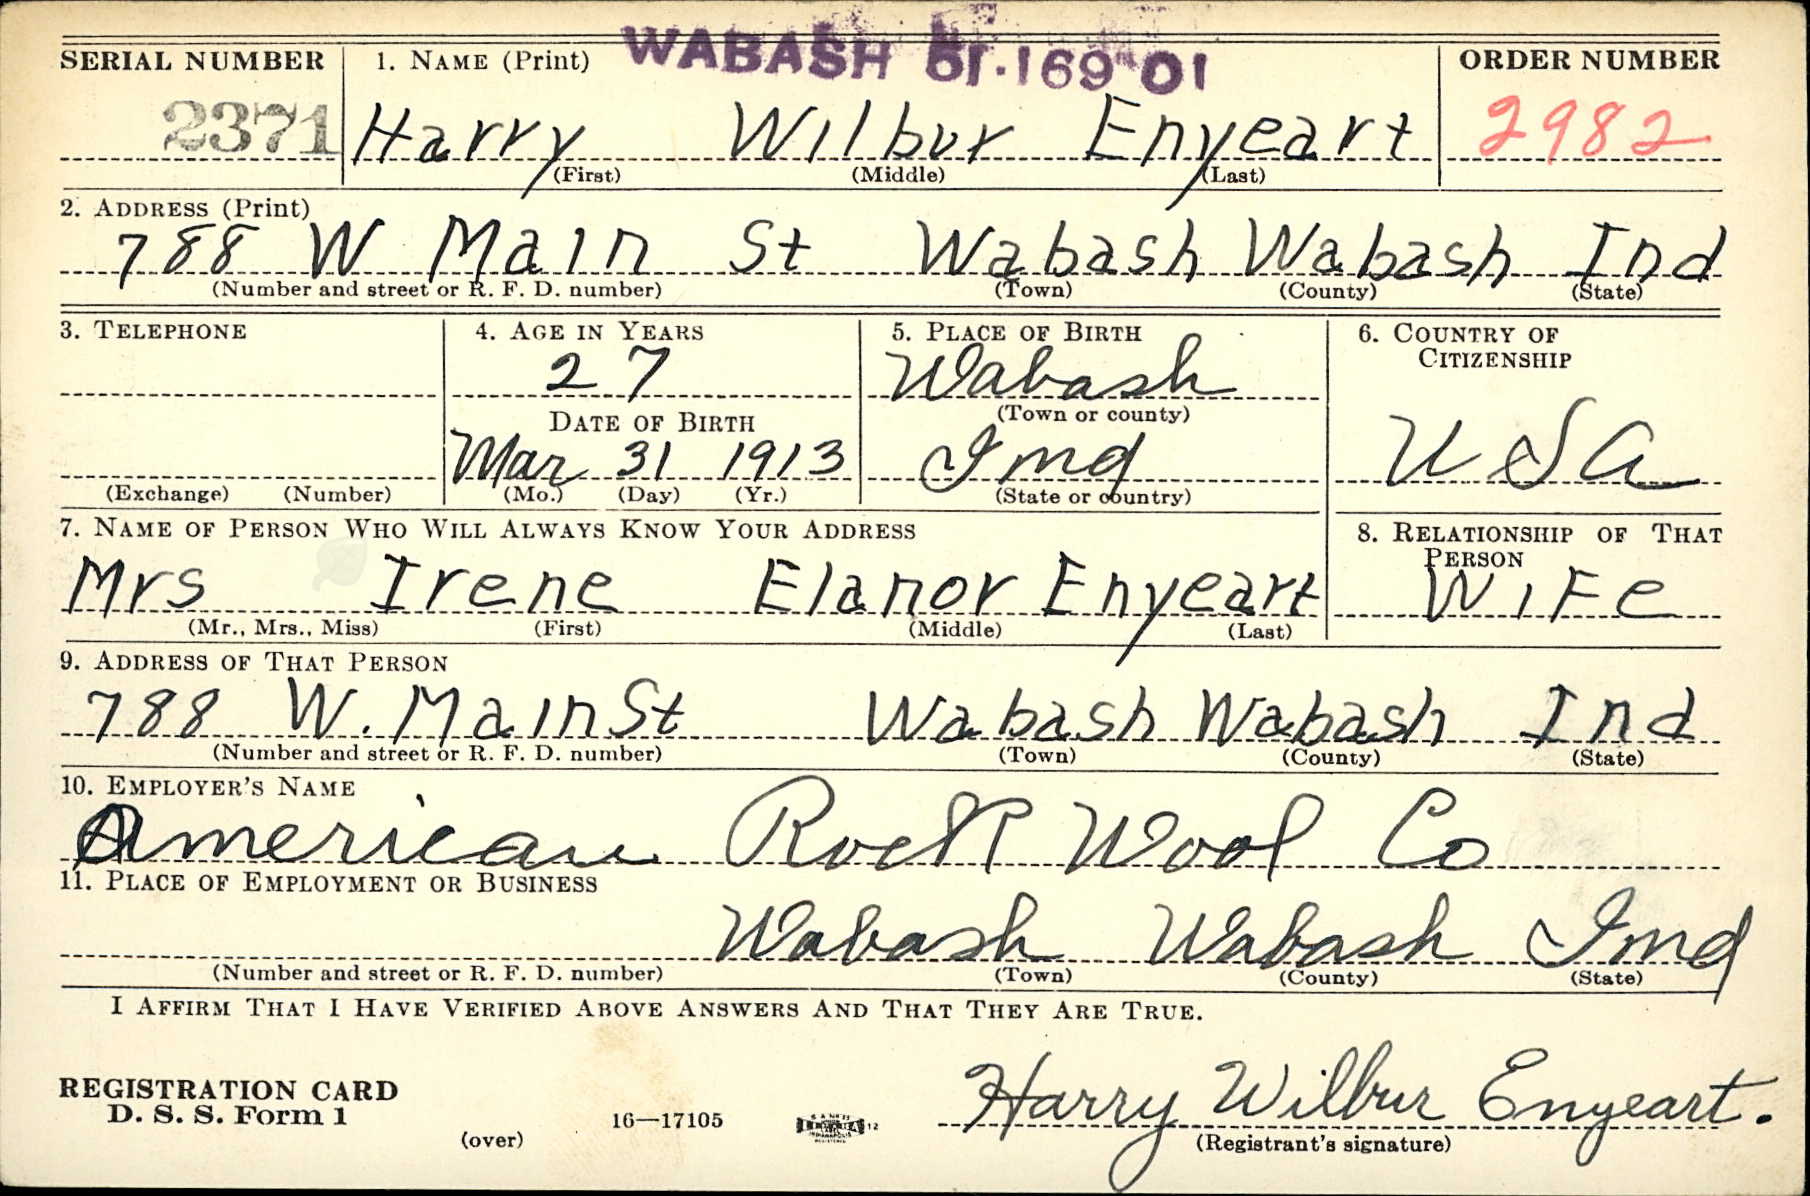 WABASH 01·169 01
SERIAL NUMBER 1. NAME (Print) ORDER NUMBER
2371 Harry Wilbur Enyeart 2982
(First) (Middle) (Last)
2. ADDRESS (Print)
788 W Main St Wabash Wabash Ind
(Number and street or R. F. D. number) (Town) (County) (State)
3. TELEPHONE 4. AGE IN YEARS 5. PLACE OF BIRTH 6. COUNTRY OF CITIZENSHIP
27 Wabash
(Town or county)
DATE OF BIRTH
Mar 31 1913 Ind U S A
(Exchange) (Number) (Mo.) (Day) (Yr.) (State or country)
7. NAME OF PERSON WHO WILL ALWAYS KNOW YOUR ADDRESS 8. RELATIONSHIP OF THAT PERSON
Mrs Irene Elanor Enyeart Wife
(Mr., Mrs., Miss) (First) (Middle) (Last)
9. ADDRESS OF THAT PERSON
788 W. Main St Wabash Wabash Ind
(Number and street or R. F. D. number) (Town) (County) (State)
10. EMPLOYER'S NAME
American Rock Wool Co
11. PLACE OF EMPLOYMENT OR BUSINESS
Wabash Wabash Ind
(Number and street or R. F. D. number) (Town) (County) (State)
I AFFIRM THAT I HAVE VERIFIED ABOVE ANSWERS AND THAT THEY ARE TRUE.
REGISTRATION CARD
D. S. S. Form 1 16—17105 12 Harry Wilbur Enyeart.
(over) (Registrant's signature)